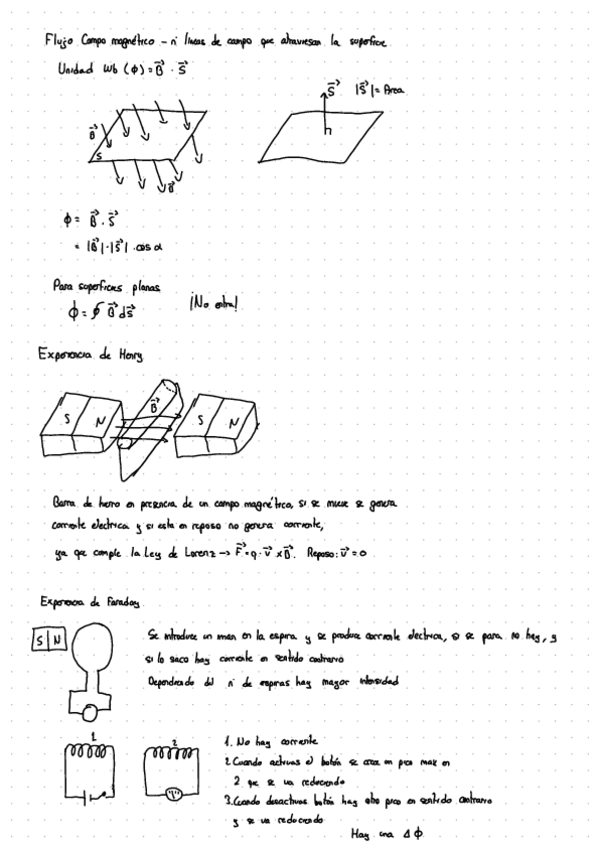 Flujo Campo magnético - nº líneas de campo que atraviesan la superficie
Unidad Wb (ϕ) = B⃗ · S⃗
S⃗ |S⃗| = Área
B⃗
S
B⃗
ϕ = B⃗ · S⃗
= |B⃗|·|S⃗| · cos α
Para superficies planas
ϕ = ∮ B⃗ dS⃗ ¡No entra!
Experiencia de Henry
S N B⃗ S N
Barra de hierro en presencia de un campo magnético, si se mueve se genera
corriente electrica y si esta en reposo no genera corriente,
ya que cumple la Ley de Lorenz -> F⃗ = q · v⃗ x B⃗. Reposo: v⃗ = 0
Experiencia de Faraday
S N
Se introduce un iman en la espira y se produce corriente electrica, si se para no hay, y
si lo saco hay corriente en sentido contrario
Dependiendo del nº de espiras hay mayor intensidad
1 2
1. No hay corriente
2. Cuando activas el botón se crea en pico max en
2 que se va reduciendo
3. Cuando desactivas botón hay otro pico en sentido contrario
y se va reduciendo
Hay una Δϕ